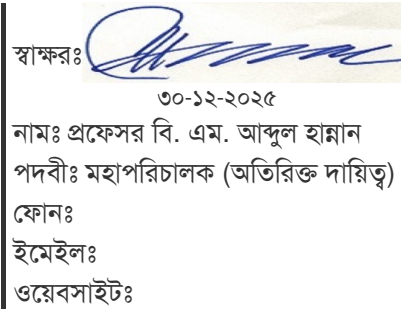 স্বাক্ষরঃ
৩০-১২-২০২৫
নামঃ প্রফেসর বি. এম. আব্দুল হান্নান
পদবীঃ মহাপরিচালক (অতিরিক্ত দায়িত্ব)
ফোনঃ
ইমেইলঃ
ওয়েবসাইটঃ